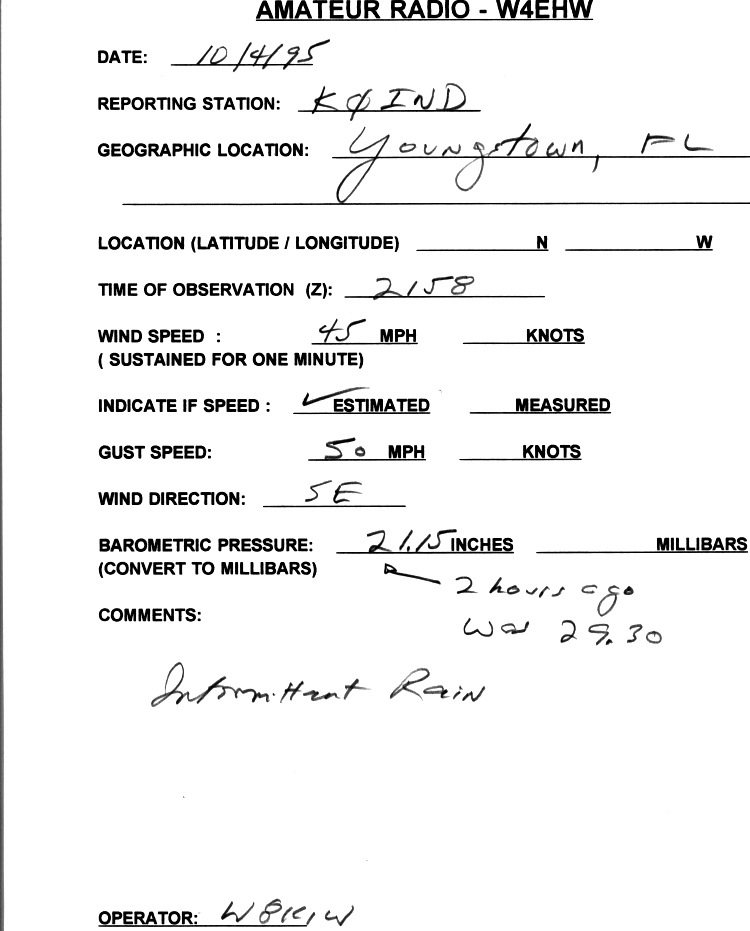 AMATEUR RADIO - W4EHW
DATE: 10/4/95
REPORTING STATION: KØIND
GEOGRAPHIC LOCATION: Youngstown, FL
LOCATION (LATITUDE / LONGITUDE) N W
TIME OF OBSERVATION (Z): 2158
WIND SPEED : 45 MPH KNOTS
( SUSTAINED FOR ONE MINUTE)
INDICATE IF SPEED : ✓ ESTIMATED MEASURED
GUST SPEED: 50 MPH KNOTS
WIND DIRECTION: SE
BAROMETRIC PRESSURE: 21.15 INCHES MILLIBARS
(CONVERT TO MILLIBARS) 2 hours ago
COMMENTS: was 29.30
Intermittant Rain
OPERATOR: